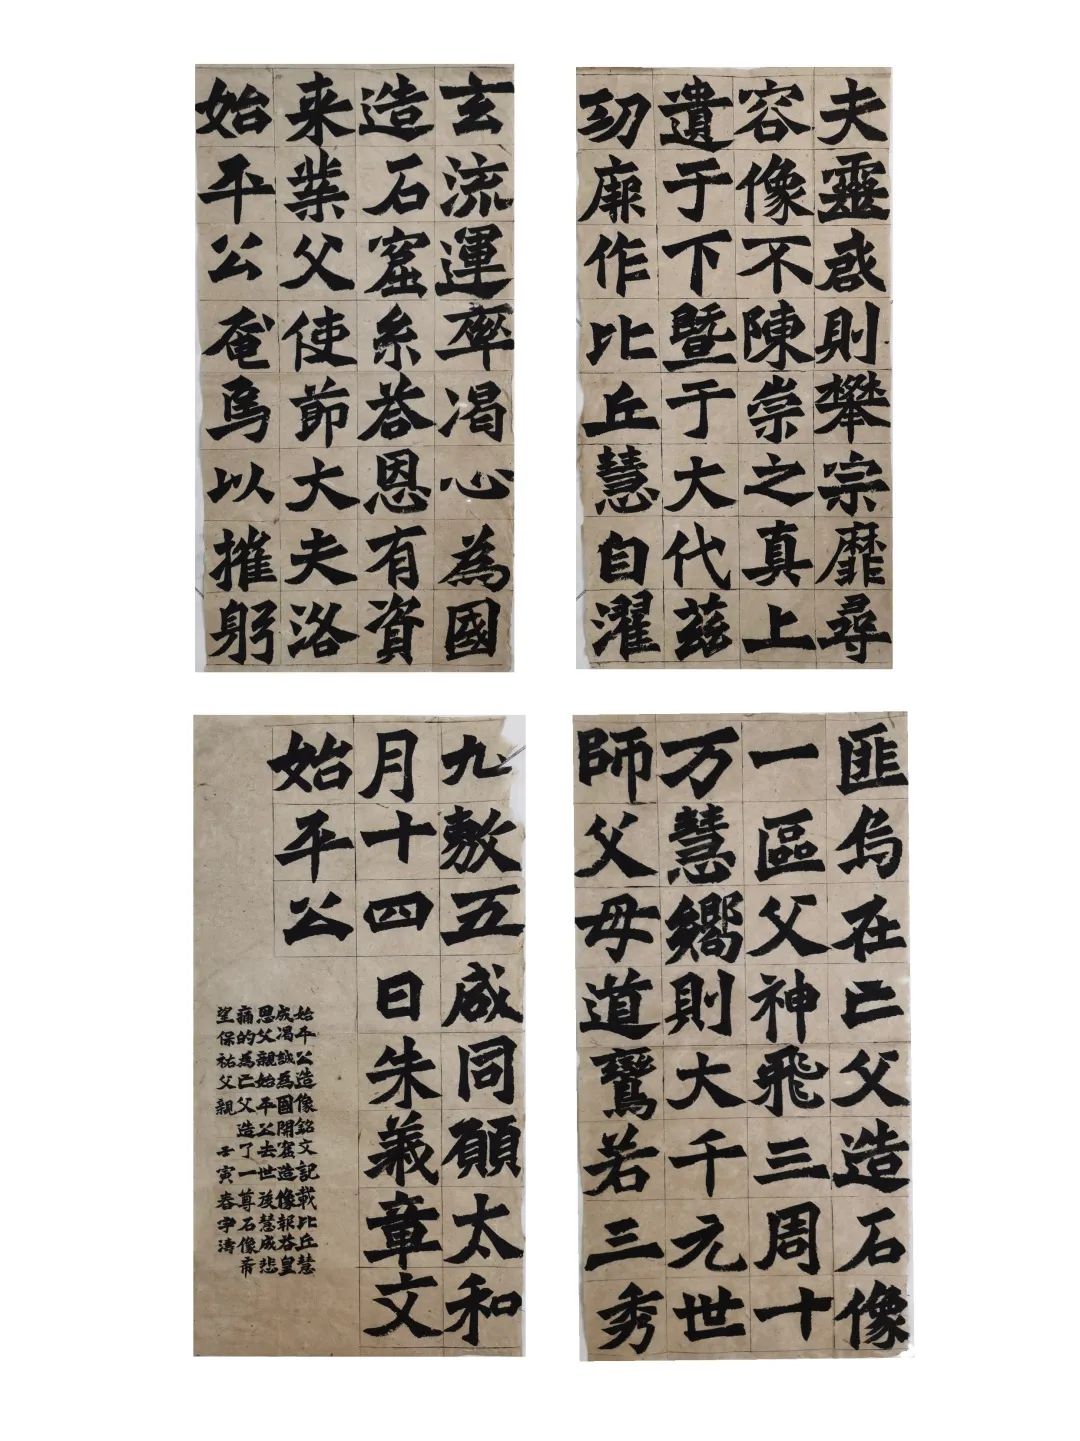 夫靈啟則攀宗靡尋
容像不陳崇之真上
遺于下暨于大代茲
功廓作比丘慧自濯
玄流運率渴心為國
造石窟系答恩有資
来業父使節大夫洛
始平公奄焉以摧躬
匪烏在亡父造石像
一區父神飛三周十
万慧嚮則大千元世
師父母道鸞若三秀
九敷五咸同願太和
月十四日朱義章文
始平公
始平公造像銘文記載比丘慧
成渴誠為國開窟造像報答皇
恩父親始平公去世後慧成悲
痛的為亡父造了一尊石像希
望保祐父親 壬寅春宇濤